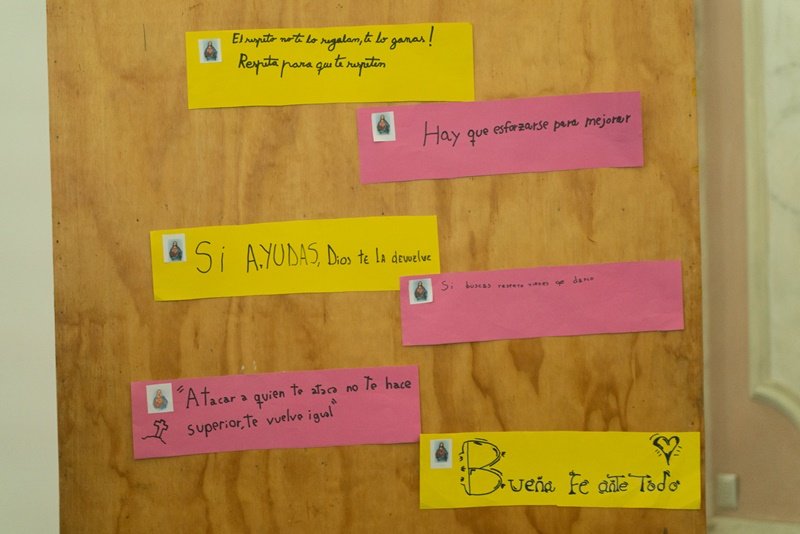 El respeto no te lo regalan, te lo ganas!
Respeta para que te respeten
Hay que esforzarse para mejorar
Si AYUDAS, Dios te la devuelve
Si buscas respeto tienes que darlo
"Atacar a quien te ataca no te hace
superior, te vuelve igual"
Bueña Fe ante Todo